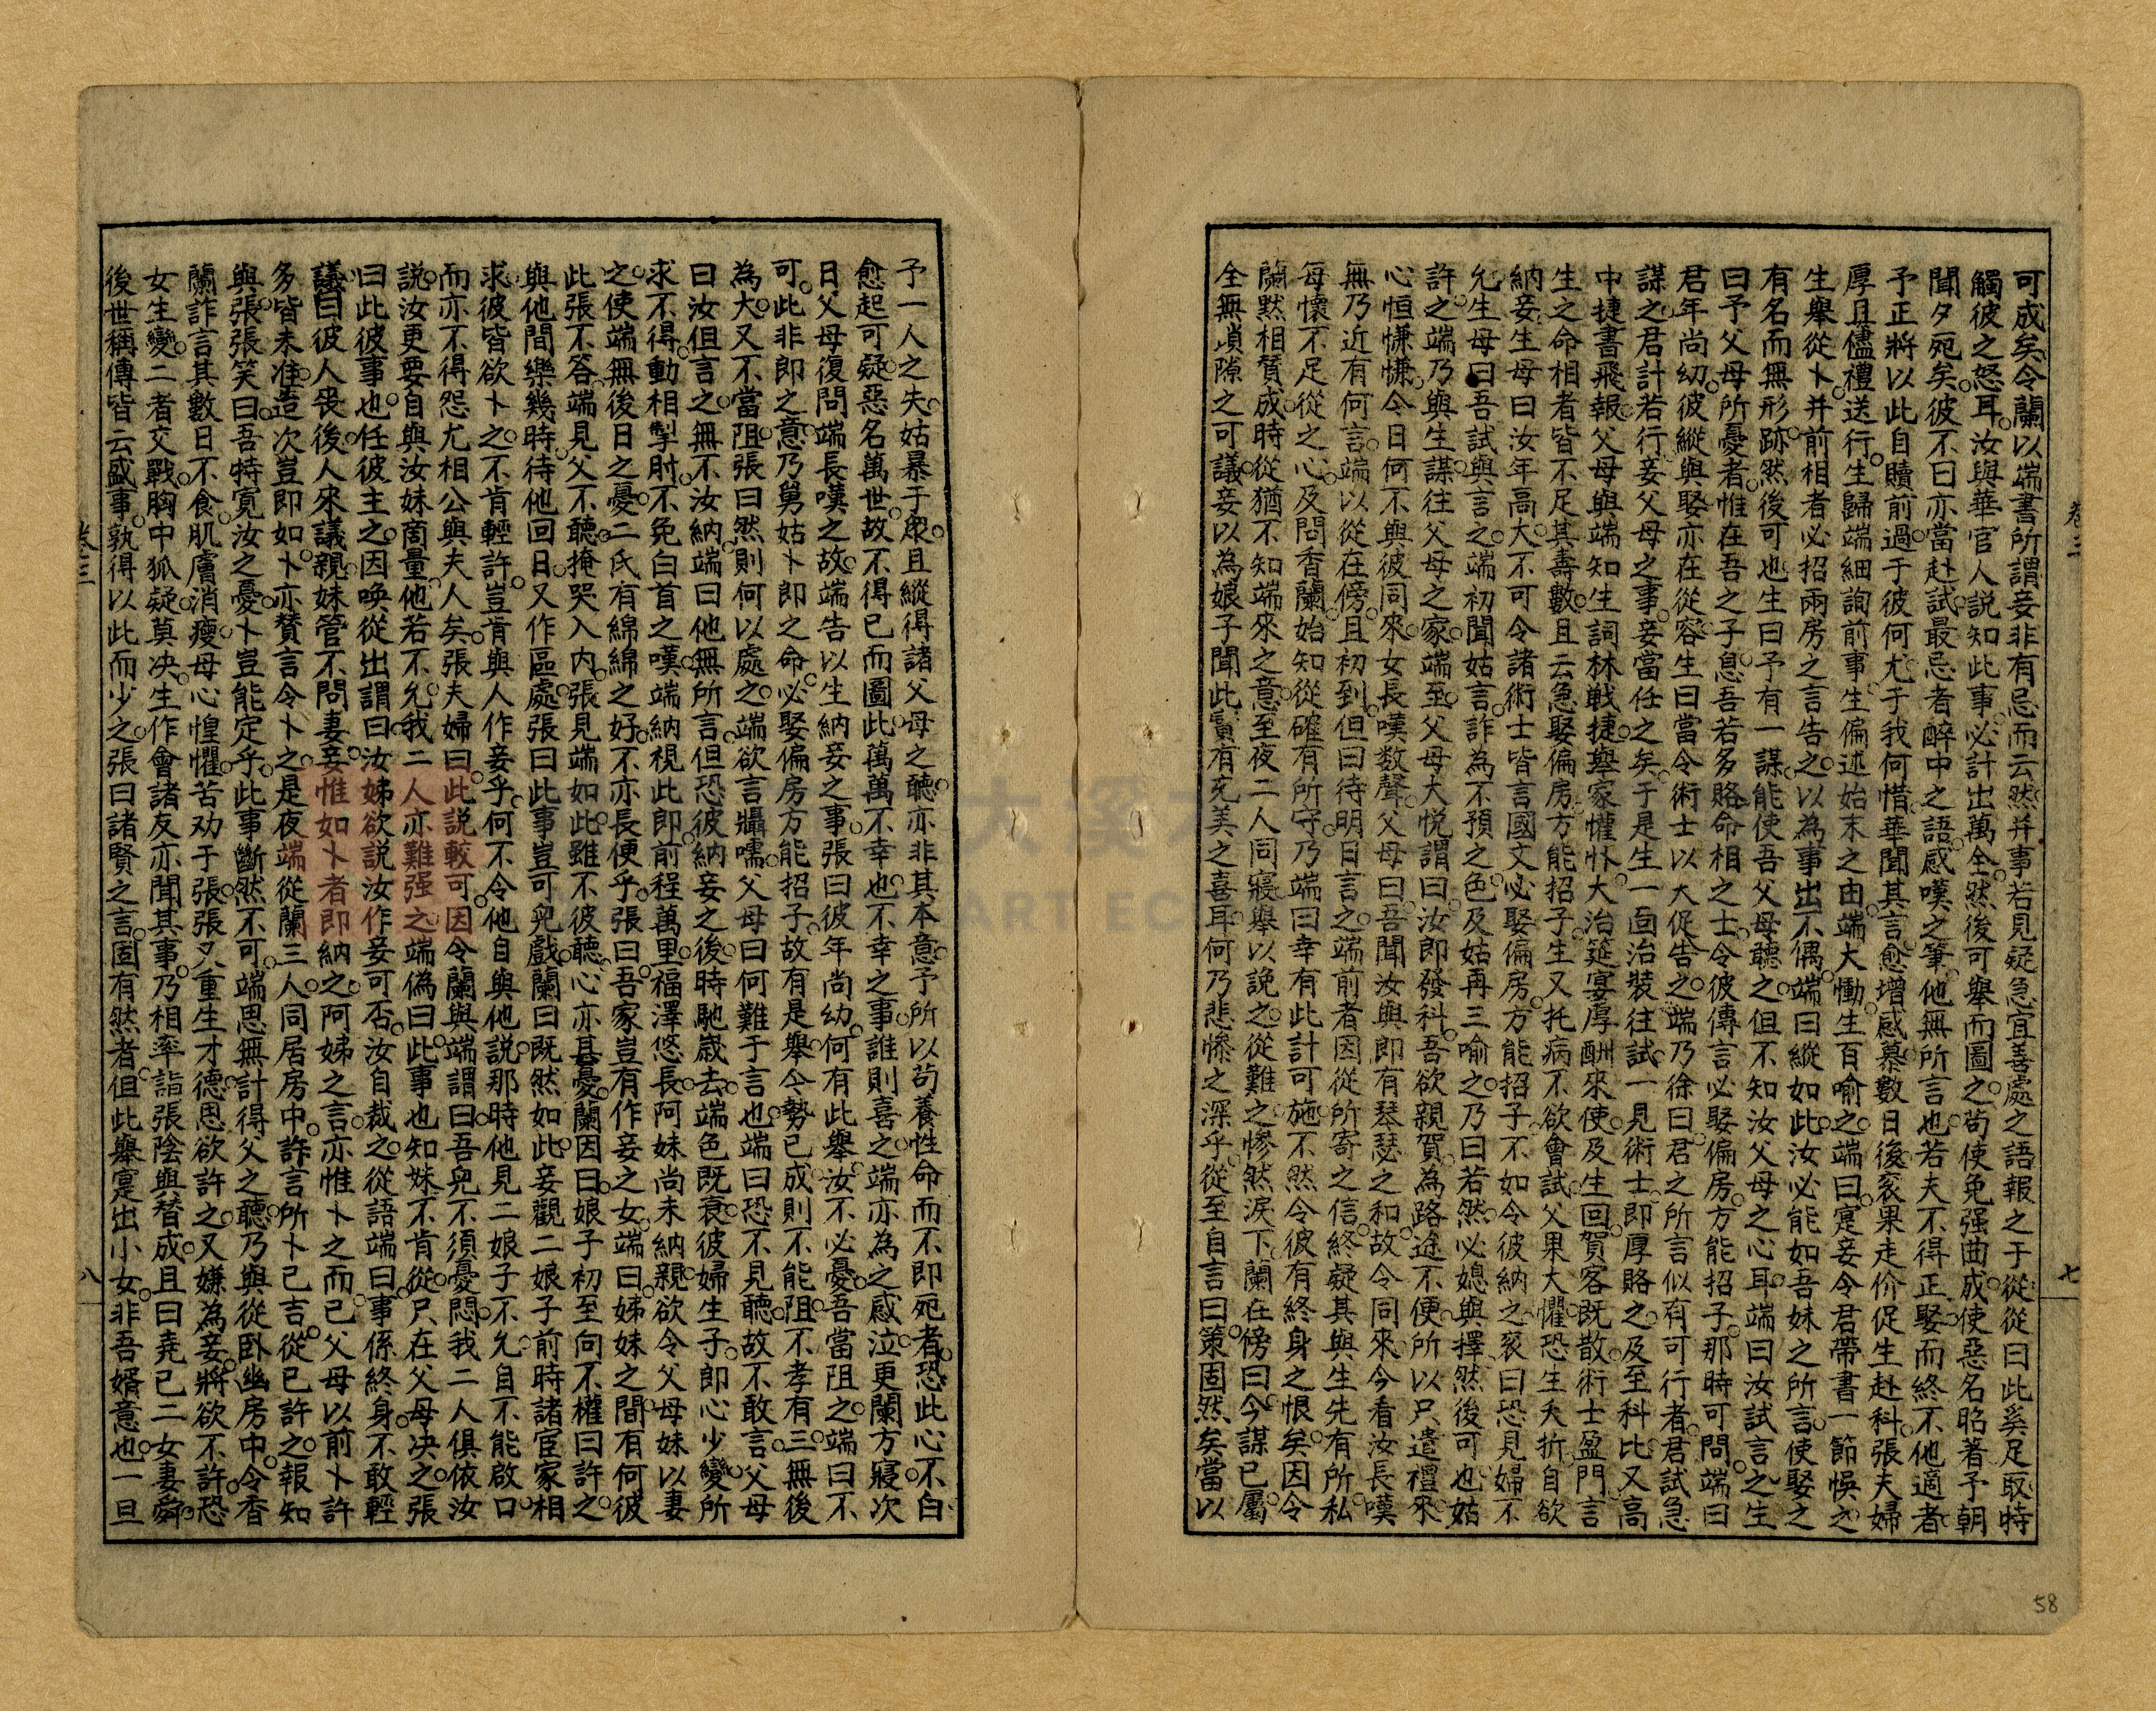 可成矣令蘭以端書所謂妾非有忌而云然并事若見疑急宜善處之語報之于從從曰此奚足取特
觸彼之怒耳汝與華官人説知此事必計出萬全然後可舉而圖之苟使免强曲成使惡名昭著予朝
聞夕死矣彼不曰亦當赴試最忌者醉中之語感嘆之筆他無所言也若夫不得正娶而終不他適者
予正將以此自贖前過于彼何尤于我何惜華聞其言愈增感慕數日後衮果走价促生赴科張夫婦
厚具儘禮送行生歸端細詢前事生偏述始末之由端大慟生百喻之端曰寔妾令君帶書一節悞之
生舉從卜并前相者必招兩房之言告之以為事出不偶端曰縱如此汝必能如吾妹之所言使娶之
有名而無形跡然後可也生曰予有一謀能使吾父母聽之但不知汝父母之心耳端曰汝試言之生
曰予父母所憂者惟在吾之子息吾若多賂命相之士令彼傳言必娶偏房方能招子那時可問端曰
君年尚幼彼縱與娶亦在從容生曰當令術士以大促告之端乃徐曰君之所言似有可行者君試急
謀之君計若行妾父母之事妾當任之矣于是生一面治裝往試一見術士即厚賂之及至科比又高
中捷書飛報父母與端知生詞林戰捷舉家懽忭大治筵宴厚酬來使及生回賀客既散術士盈門言
生之命相者皆不足其壽數且云急娶偏房方能招子生又托病不欲會試父果大懼恐生夭折自欲
納妾生母曰汝年高大不可令諸術士皆言國文必娶偏房方能招子不如令彼納之衮曰恐見婦不
允生母曰吾試與言之端初聞姑言詐為不預之色及姑再三喻之乃曰若然必媳與擇然後可也姑
許之端乃與生謀往父母之家端至父母大悅謂曰汝即發科吾欲親賀為路途不便所以只遣禮來
心恒慊慊今日何不與彼同來女長嘆数聲父母曰吾聞汝與即有琴瑟之和故令同來今看汝長嘆
無乃近有何言端以從在傍且初到但曰待明日言之端前者因從所寄之信終疑其與生先有所私
每懷不足從之心及問香蘭始知從確有所守乃端曰幸有此計可施不然令彼有終身之恨矣因令
蘭默相贊成時從猶不知端來之意至夜二人同寢舉以說之從難之慘然淚下蘭在傍曰今謀已屬
全無嵬隙之可議妾以為娘子聞此實有充美之喜耳何乃悲慘之深乎從至自言曰策固然矣當以
予一人之失姑暴于衆且縱得諸父母之聽亦非其本意予所以苟養性命而不即死者恐此心不白
愈起可疑惡名萬世故不得已而圖此萬萬不幸也不幸之事誰則喜之端亦為之感泣更蘭方寢次
日父母復問端長嘆之故端告以生納妾之事張曰彼年尚幼何有此舉汝不必憂吾當阻之端曰不
可此非即之意乃舅姑卜即之命必娶偏房方能招子故有是舉今勢已成則不能阻不孝有三無後
為大又不當阻張曰然則何以處之端欲言囁嚅父母曰何難于言也端曰恐不見聽故不敢言父母
曰汝但言之無不汝納端曰他無所言但恐彼納妾之後時馳歲去端色既衰彼婦生子即心少變所
求不得動相掣肘不免白首之嘆端納視此即前程萬里福澤悠長阿妹尚未納親欲令父母妹以妻
之使端無後日之憂二氏有綿綿之好不亦長便乎張曰吾家豈有作妾之女端曰姊妹之間有何彼
此張不答端見父不聽掩哭入內張見端如此雖不彼聽心亦甚憂蘭因曰娘子初至向不權曰許之
與他間樂幾時待他回日又作區處張曰此事豈可兒戲蘭曰既然如此妾觀二娘子前時諸宦家相
求彼皆欲卜之不肯輕許豈肯與人作妾乎何不令他自與他説那時他見二娘子不允自不能啟口
而亦不得怨尤相公與夫人矣張夫婦曰此説較可因令蘭與端謂曰吾兒不須憂悶我二人俱依汝
説汝更要自與汝妹商量他若不允我二人亦難强之端偽曰此事也知妹不肯從只在父母决之張
曰此彼事也任彼主之因喚從出謂曰汝姊欲説汝作妾可否汝自裁之從語端曰事係終身不敢輕
議曰彼人喪後人來議親妹管不問妻妾惟如卜者即納之阿姊之言亦惟卜之而已父母以前卜許
多皆未准造次豈即如卜亦贊言令卜之是夜端從蘭三人同居房中詐言所卜已吉從已許之報知
與張張笑曰吾特寬汝之憂卜豈能定乎此事斷然不可端思無計得父之聽乃與從臥幽房中令香
蘭詐言其數日不食肌膚消瘦母心惶懼苦劝于張張又重生才德思欲許之又嫌為妾將欲不許恐
女生變二者交戰胸中狐疑莫决生作會諸友亦聞其事乃相率詣張陰與替成且曰堯已二女妻舜
後世稱傳皆云盛事孰得以此而少之張曰諸賢之言固有然者但此舉寔出小女非吾婿意也一旦
卷三
七
卷三
八
58